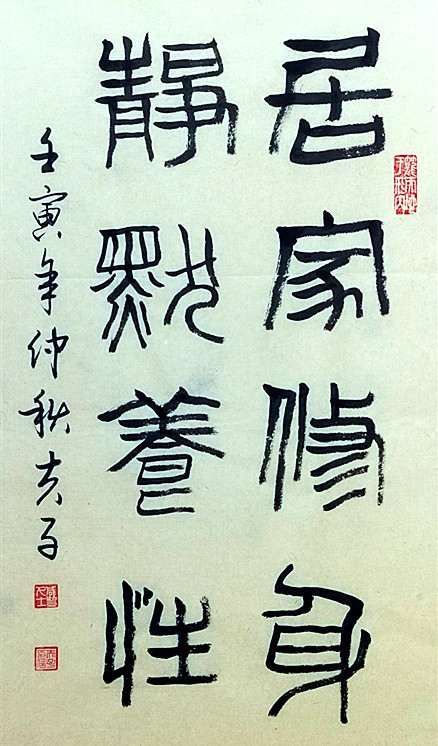 居家修身
静默養性
壬寅年仲秋吉子